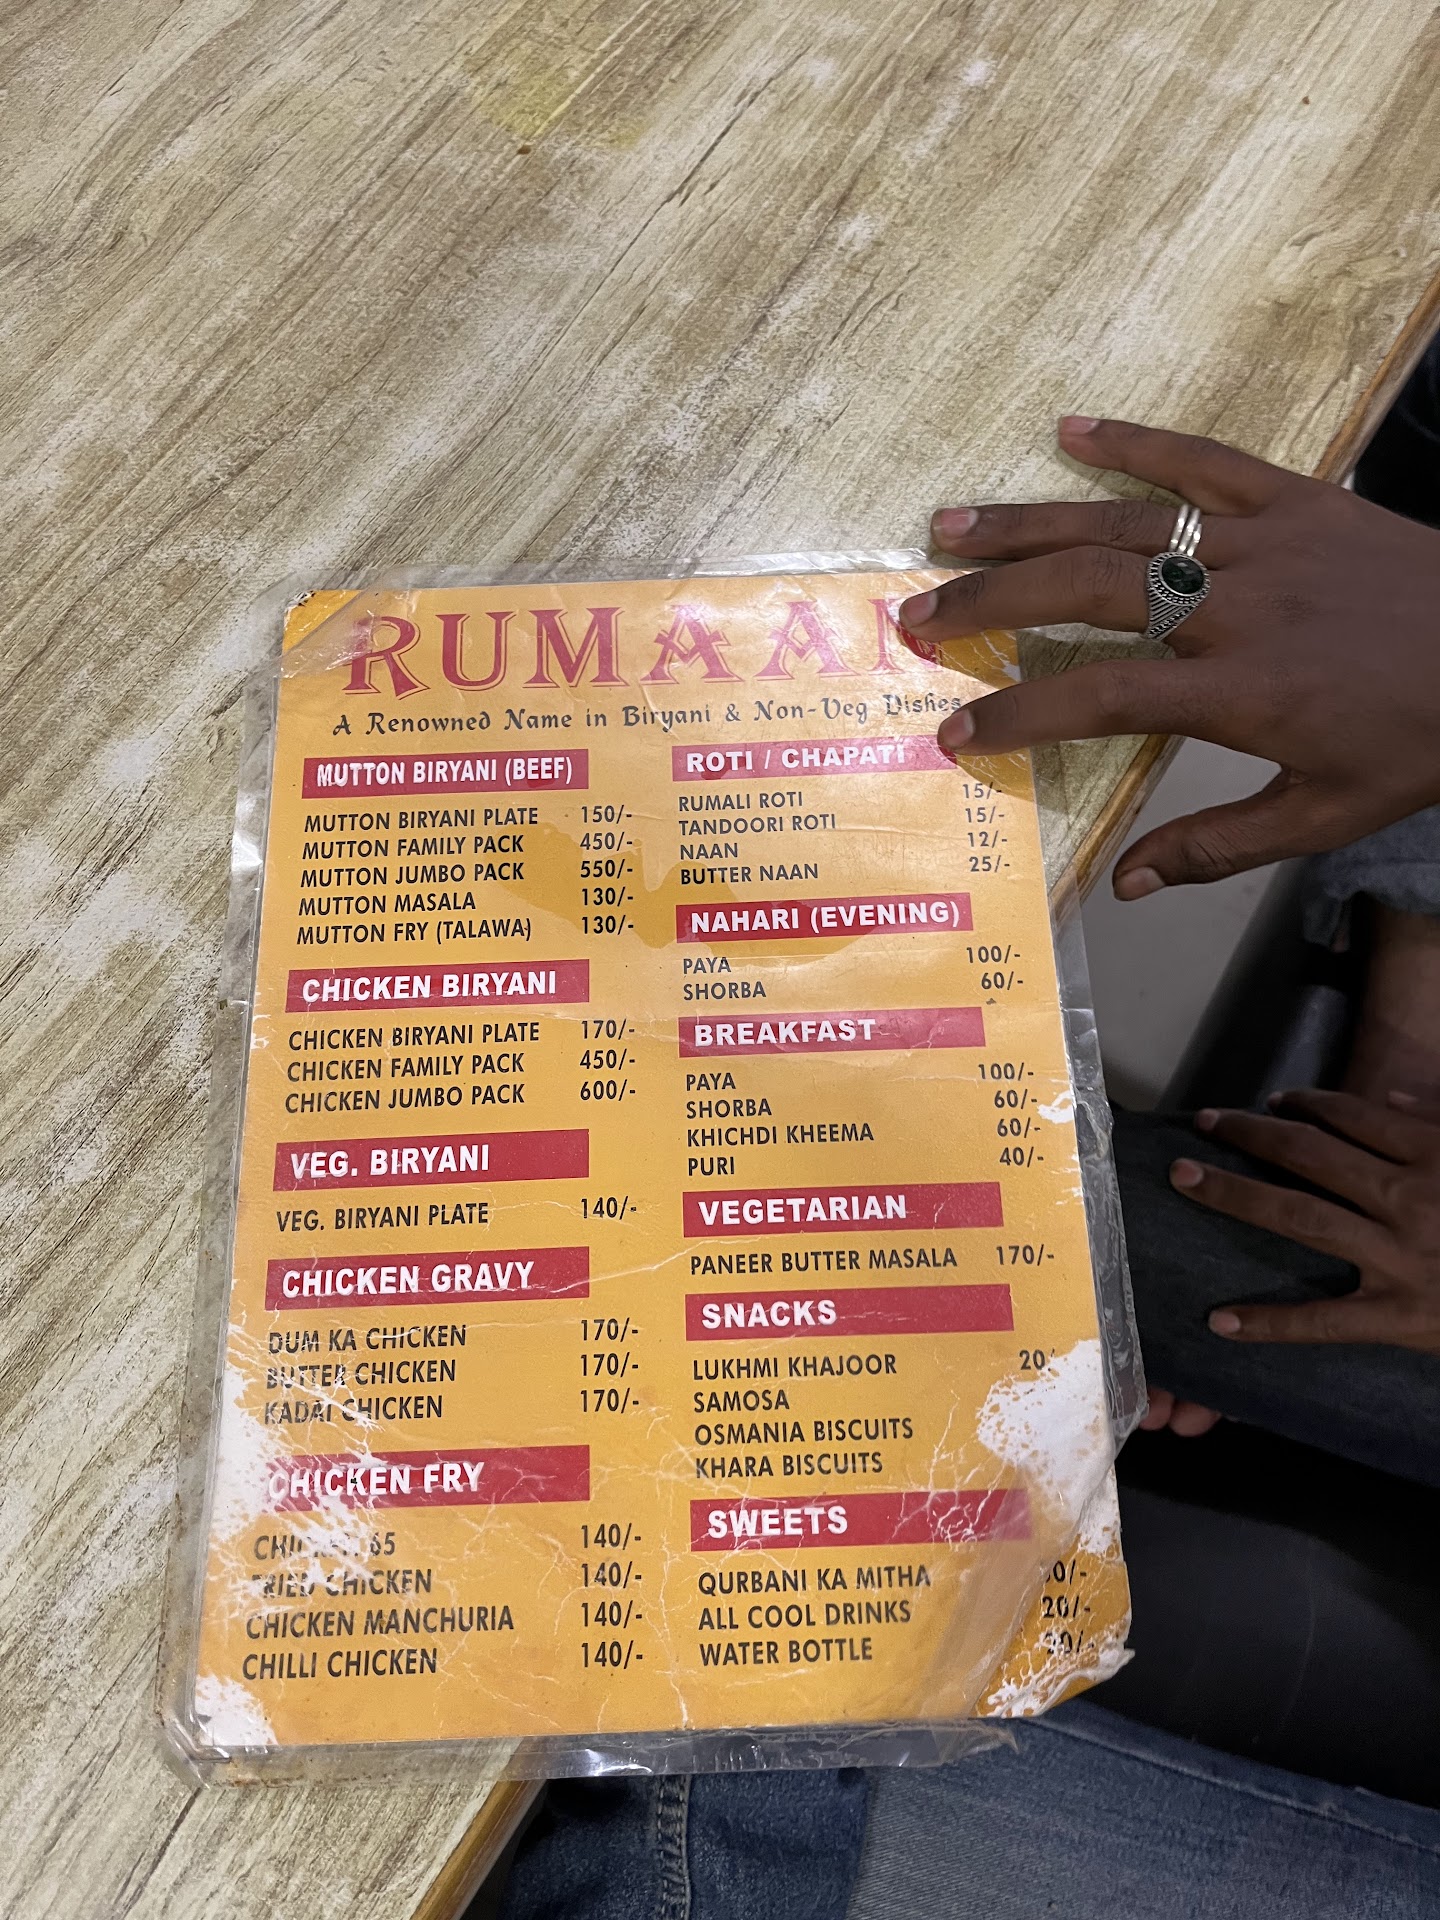 RUMAAN
A Renowned Name in Biryani & Non-Veg Dishes
MUTTON BIRYANI (BEEF)
MUTTON BIRYANI PLATE 150/-
MUTTON FAMILY PACK 450/-
MUTTON JUMBO PACK 550/-
MUTTON MASALA 130/-
MUTTON FRY (TALAWA) 130/-
CHICKEN BIRYANI
CHICKEN BIRYANI PLATE 170/-
CHICKEN FAMILY PACK 450/-
CHICKEN JUMBO PACK 600/-
VEG. BIRYANI
VEG. BIRYANI PLATE 140/-
CHICKEN GRAVY
DUM KA CHICKEN 170/-
BUTTER CHICKEN 170/-
KADAI CHICKEN 170/-
CHICKEN FRY
CHICKEN 65 140/-
FRIED CHICKEN 140/-
CHICKEN MANCHURIA 140/-
CHILLI CHICKEN 140/-
ROTI / CHAPATI
RUMALI ROTI 15/-
TANDOORI ROTI 15/-
NAAN 12/-
BUTTER NAAN 25/-
NAHARI (EVENING)
PAYA 100/-
SHORBA 60/-
BREAKFAST
PAYA 100/-
SHORBA 60/-
KHICHDI KHEEMA 60/-
PURI 40/-
VEGETARIAN
PANEER BUTTER MASALA 170/-
SNACKS
LUKHMI KHAJOOR 20/
SAMOSA
OSMANIA BISCUITS
KHARA BISCUITS
SWEETS
QURBANI KA MITHA
ALL COOL DRINKS 20/-
WATER BOTTLE